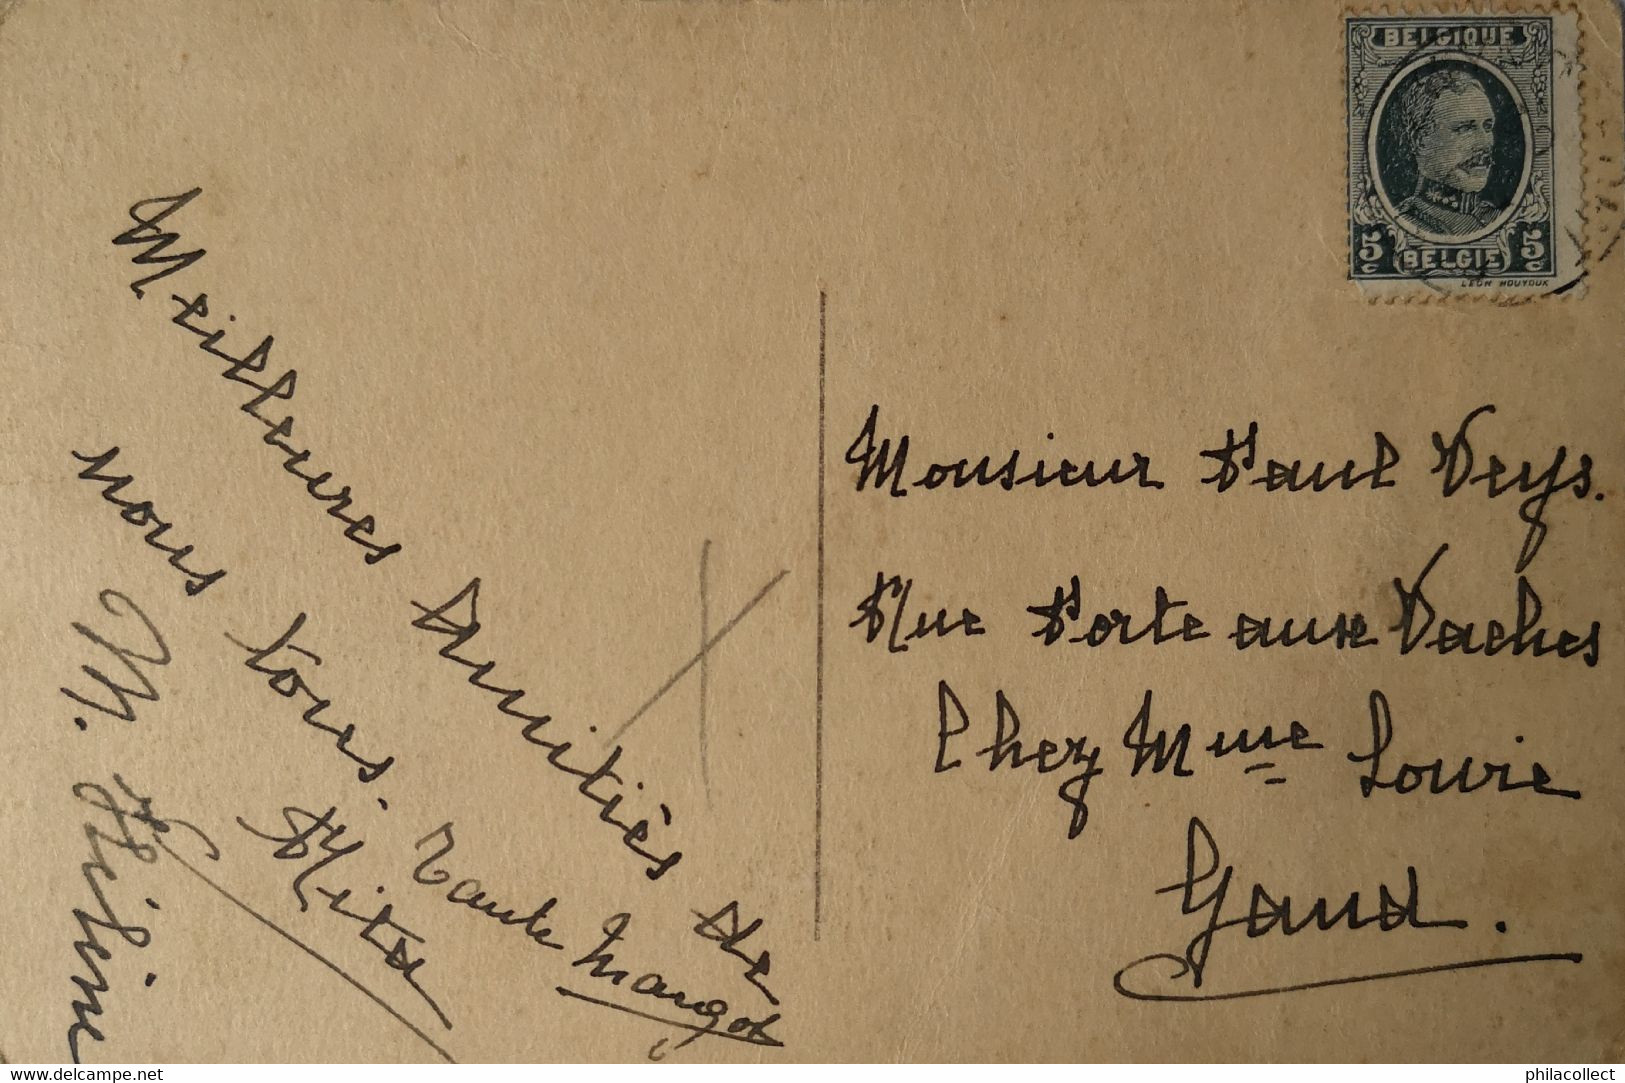 BELGIQUE
5 c BELGIE 5 c
LEON HOUYOUX
Meilleures Amitiés de
nous tous.
Rita
Tante Margot
M.
Monsieur Paul Veys.
Rue Porte aux Vaches
Chez Mme Lowie
Gand.
www.delcampe.net
philacollect